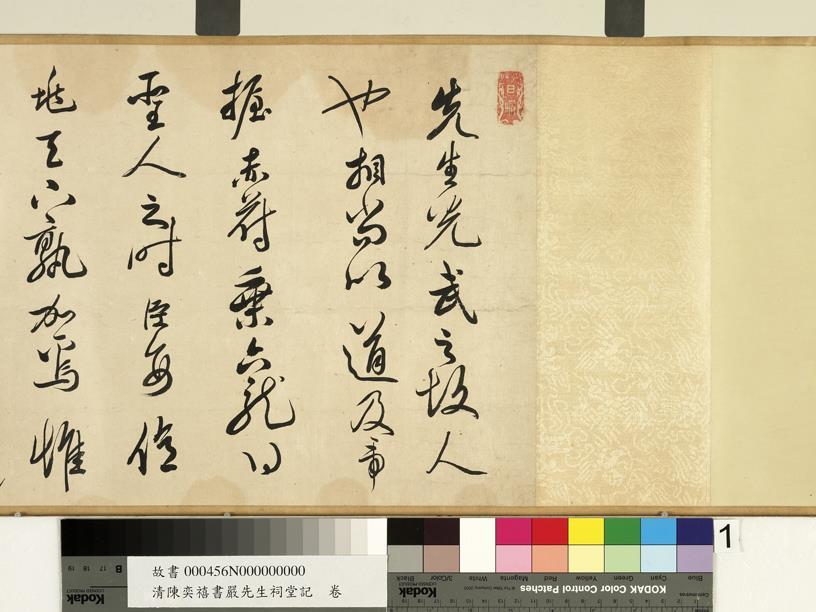 先生光武之故人
也相尚以道及帝
握赤符乘六龍得
聖人之時臣妾億
兆天下孰加焉惟
1
KODAK Color Control Patches
Blue Cyan Green Yellow Red Magenta White 3/Color Black
Kodak
Kodak
B 17 18 19
故書 000456N000000000
清陳奕禧書嚴先生祠堂記 卷